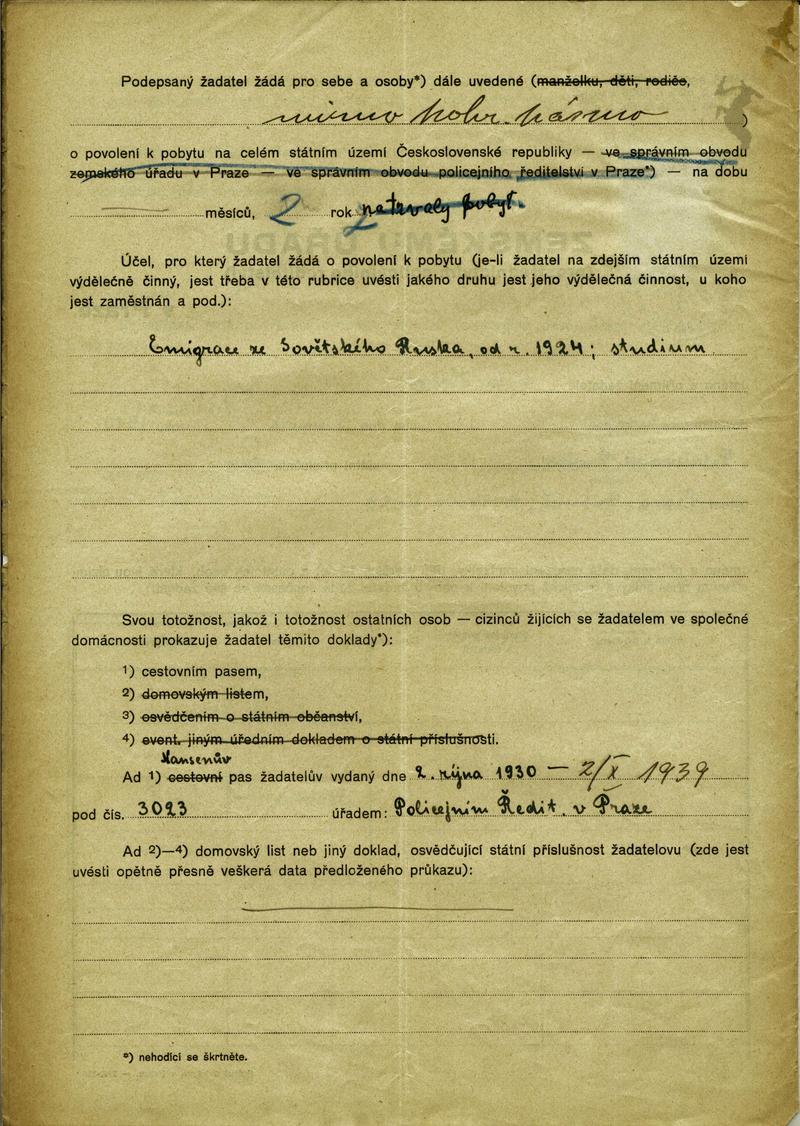 Podepsaný žadatel žádá pro sebe a osoby*) dále uvedené (manželku, děti, rodiče,
mimo pohr. pásmo )
o povolení k pobytu na celém státním území Československé republiky — ve správním obvodu
zemského úřadu v Praze — ve správním obvodu policejního ředitelství v Praze*) — na dobu
měsíců, 2 rok na trvalý pobyt.
Účel, pro který žadatel žádá o povolení k pobytu (je-li žadatel na zdejším státním území
výdělečně činný, jest třeba v této rubrice uvésti jakého druhu jest jeho výdělečná činnost, u koho
jest zaměstnán a pod.):
Emigrace ze Sovětského Ruska, od r. 1924; studium
Svou totožnost, jakož i totožnost ostatních osob — cizinců žijících se žadatelem ve společné
domácnosti prokazuje žadatel těmito doklady*):
1) cestovním pasem,
2) domovským listem,
3) osvědčením o státním občanství,
4) event. jiným úředním dokladem o státní příslušnosti.
Nansenův
Ad 1) cestovní pas žadatelův vydaný dne 2. října 1930 — 2/X 1939
pod čís. 3023 úřadem: Policejním Ředit. v Praze
Ad 2)—4) domovský list neb jiný doklad, osvědčující státní příslušnost žadatelovu (zde jest
uvésti opětně přesně veškerá data předloženého průkazu):
*) nehodící se škrtněte.